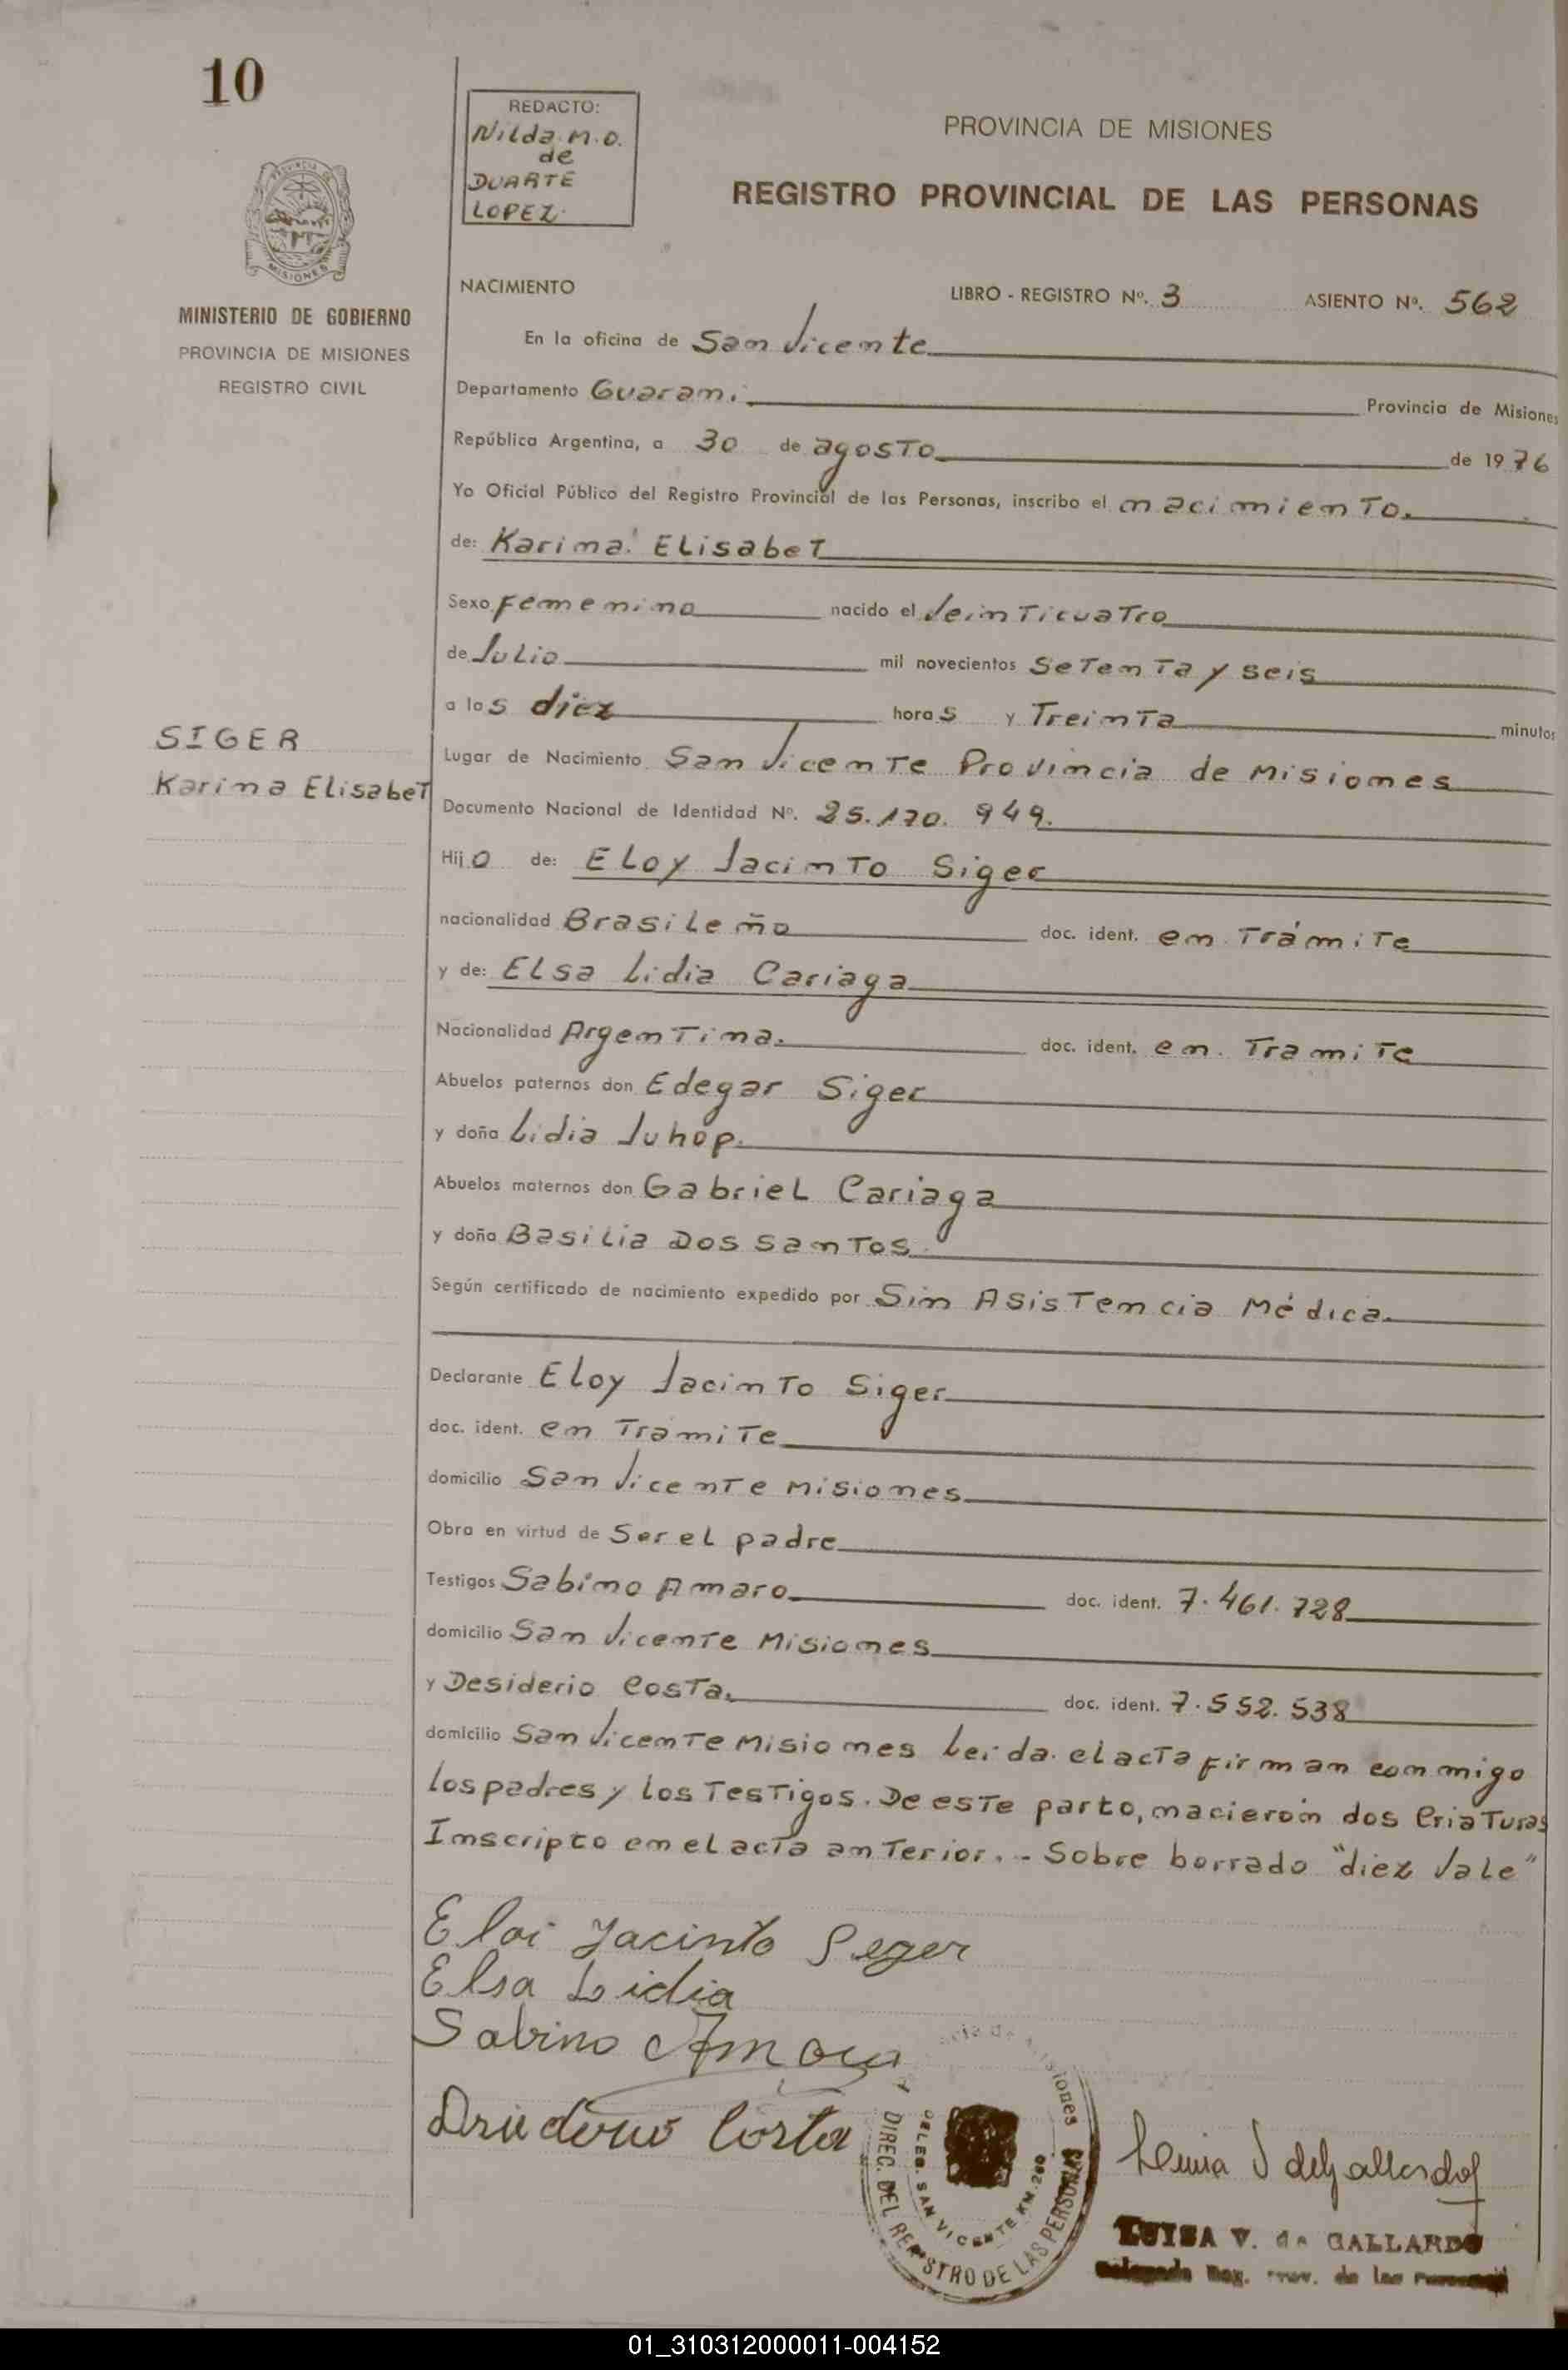 10
REDACTO:
Nilda. M. O.
de
DUARTE
LOPEZ.
PROVINCIA DE MISIONES
REGISTRO PROVINCIAL DE LAS PERSONAS
MISIONES
MINISTERIO DE GOBIERNO
PROVINCIA DE MISIONES
REGISTRO CIVIL
NACIMIENTO LIBRO - REGISTRO Nº. 3 ASIENTO Nº. 562
En la oficina de San Vicente
Departamento Guarani Provincia de Misiones
República Argentina, a 30 de agosto de 1976
Yo Oficial Público del Registro Provincial de las Personas, inscribo el nacimiento.
de: Karina Elisabet
Sexo femenino nacido el Veinticuatro
de Julio mil novecientos setenta y seis
a las diez horas y Treinta minutos
SIGER
Karina Elisabet
Lugar de Nacimiento San Vicente Provincia de Misiones
Documento Nacional de Identidad Nº. 25.170.949.
Hijo de: Eloy Jacinto Siger
nacionalidad Brasileño doc. ident. en Trámite
y de: Elsa Lidia Cariaga
Nacionalidad Argentina. doc. ident. en. Tramite
Abuelos paternos don Edegar Siger
y doña Lidia Juhop.
Abuelos maternos don Gabriel Cariaga
y doña Basilia Dos Santos.
Según certificado de nacimiento expedido por Sin Asistencia Médica.
Declarante Eloy Jacinto Siger
doc. ident. en Tramite
domicilio San Vicente Misiones
Obra en virtud de Ser el padre
Testigos Sabino Amaro doc. ident. 7.461.728
domicilio San Vicente Misiones
y Desiderio Costa. doc. ident. 7.552.538
domicilio San Vicente Misiones Leida. el acta firman conmigo
los padres y los Testigos. De este parto, nacieron dos Criaturas
Inscripto en el acta anterior. - Sobre borrado "diez Vale"
Eloi Jacinto Seger
Elsa Lidia
Sabino Amaro
Costa
DIREC. DEL REGISTRO DE LAS PERSONAS
DELEG. SAN VICENTE KM. 260
LUISA V. de GALLARDO
Delegada Reg. Prov. de las Personas
01_310312000011-004152